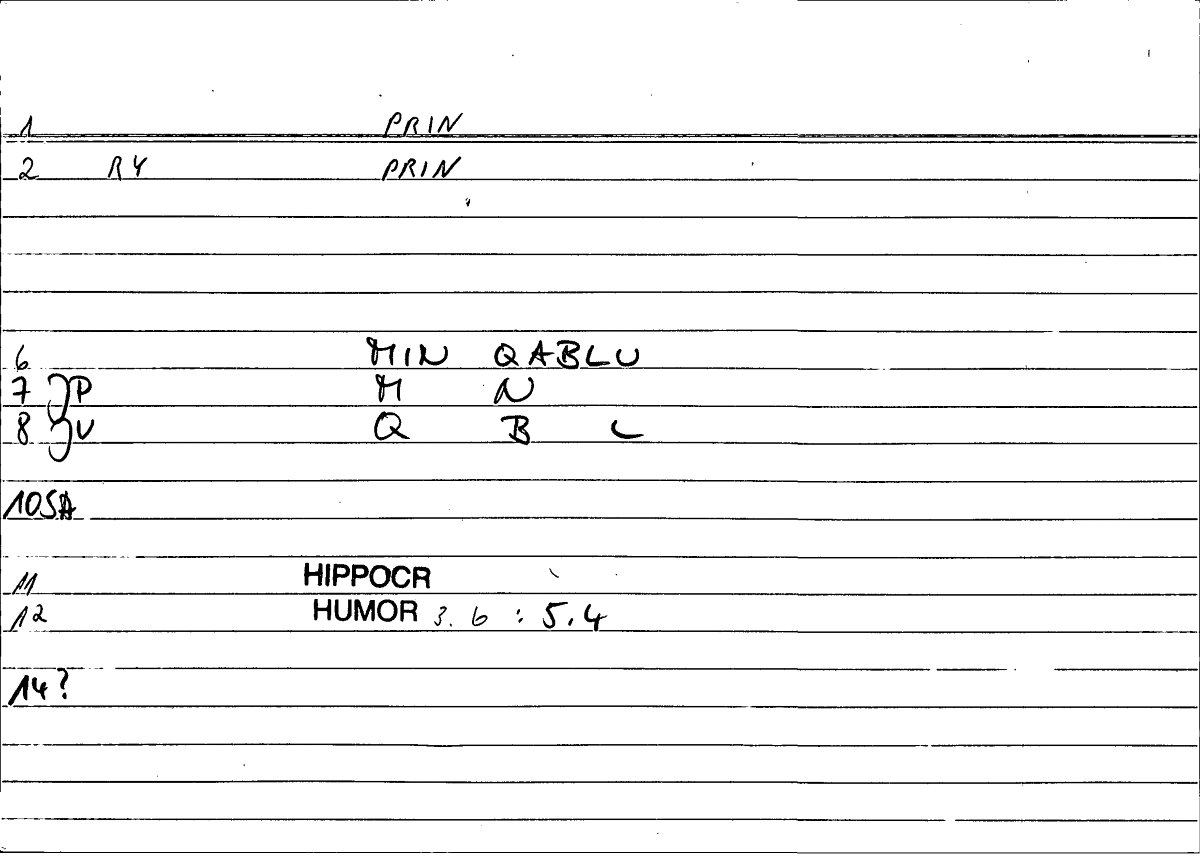 1 PRIN
2 RY PRIN
6 MIN QABLU
7 JP M N
8 JU Q B L
10SA
11 HIPPOCR
12 HUMOR 3. 6 : 5.4
14?